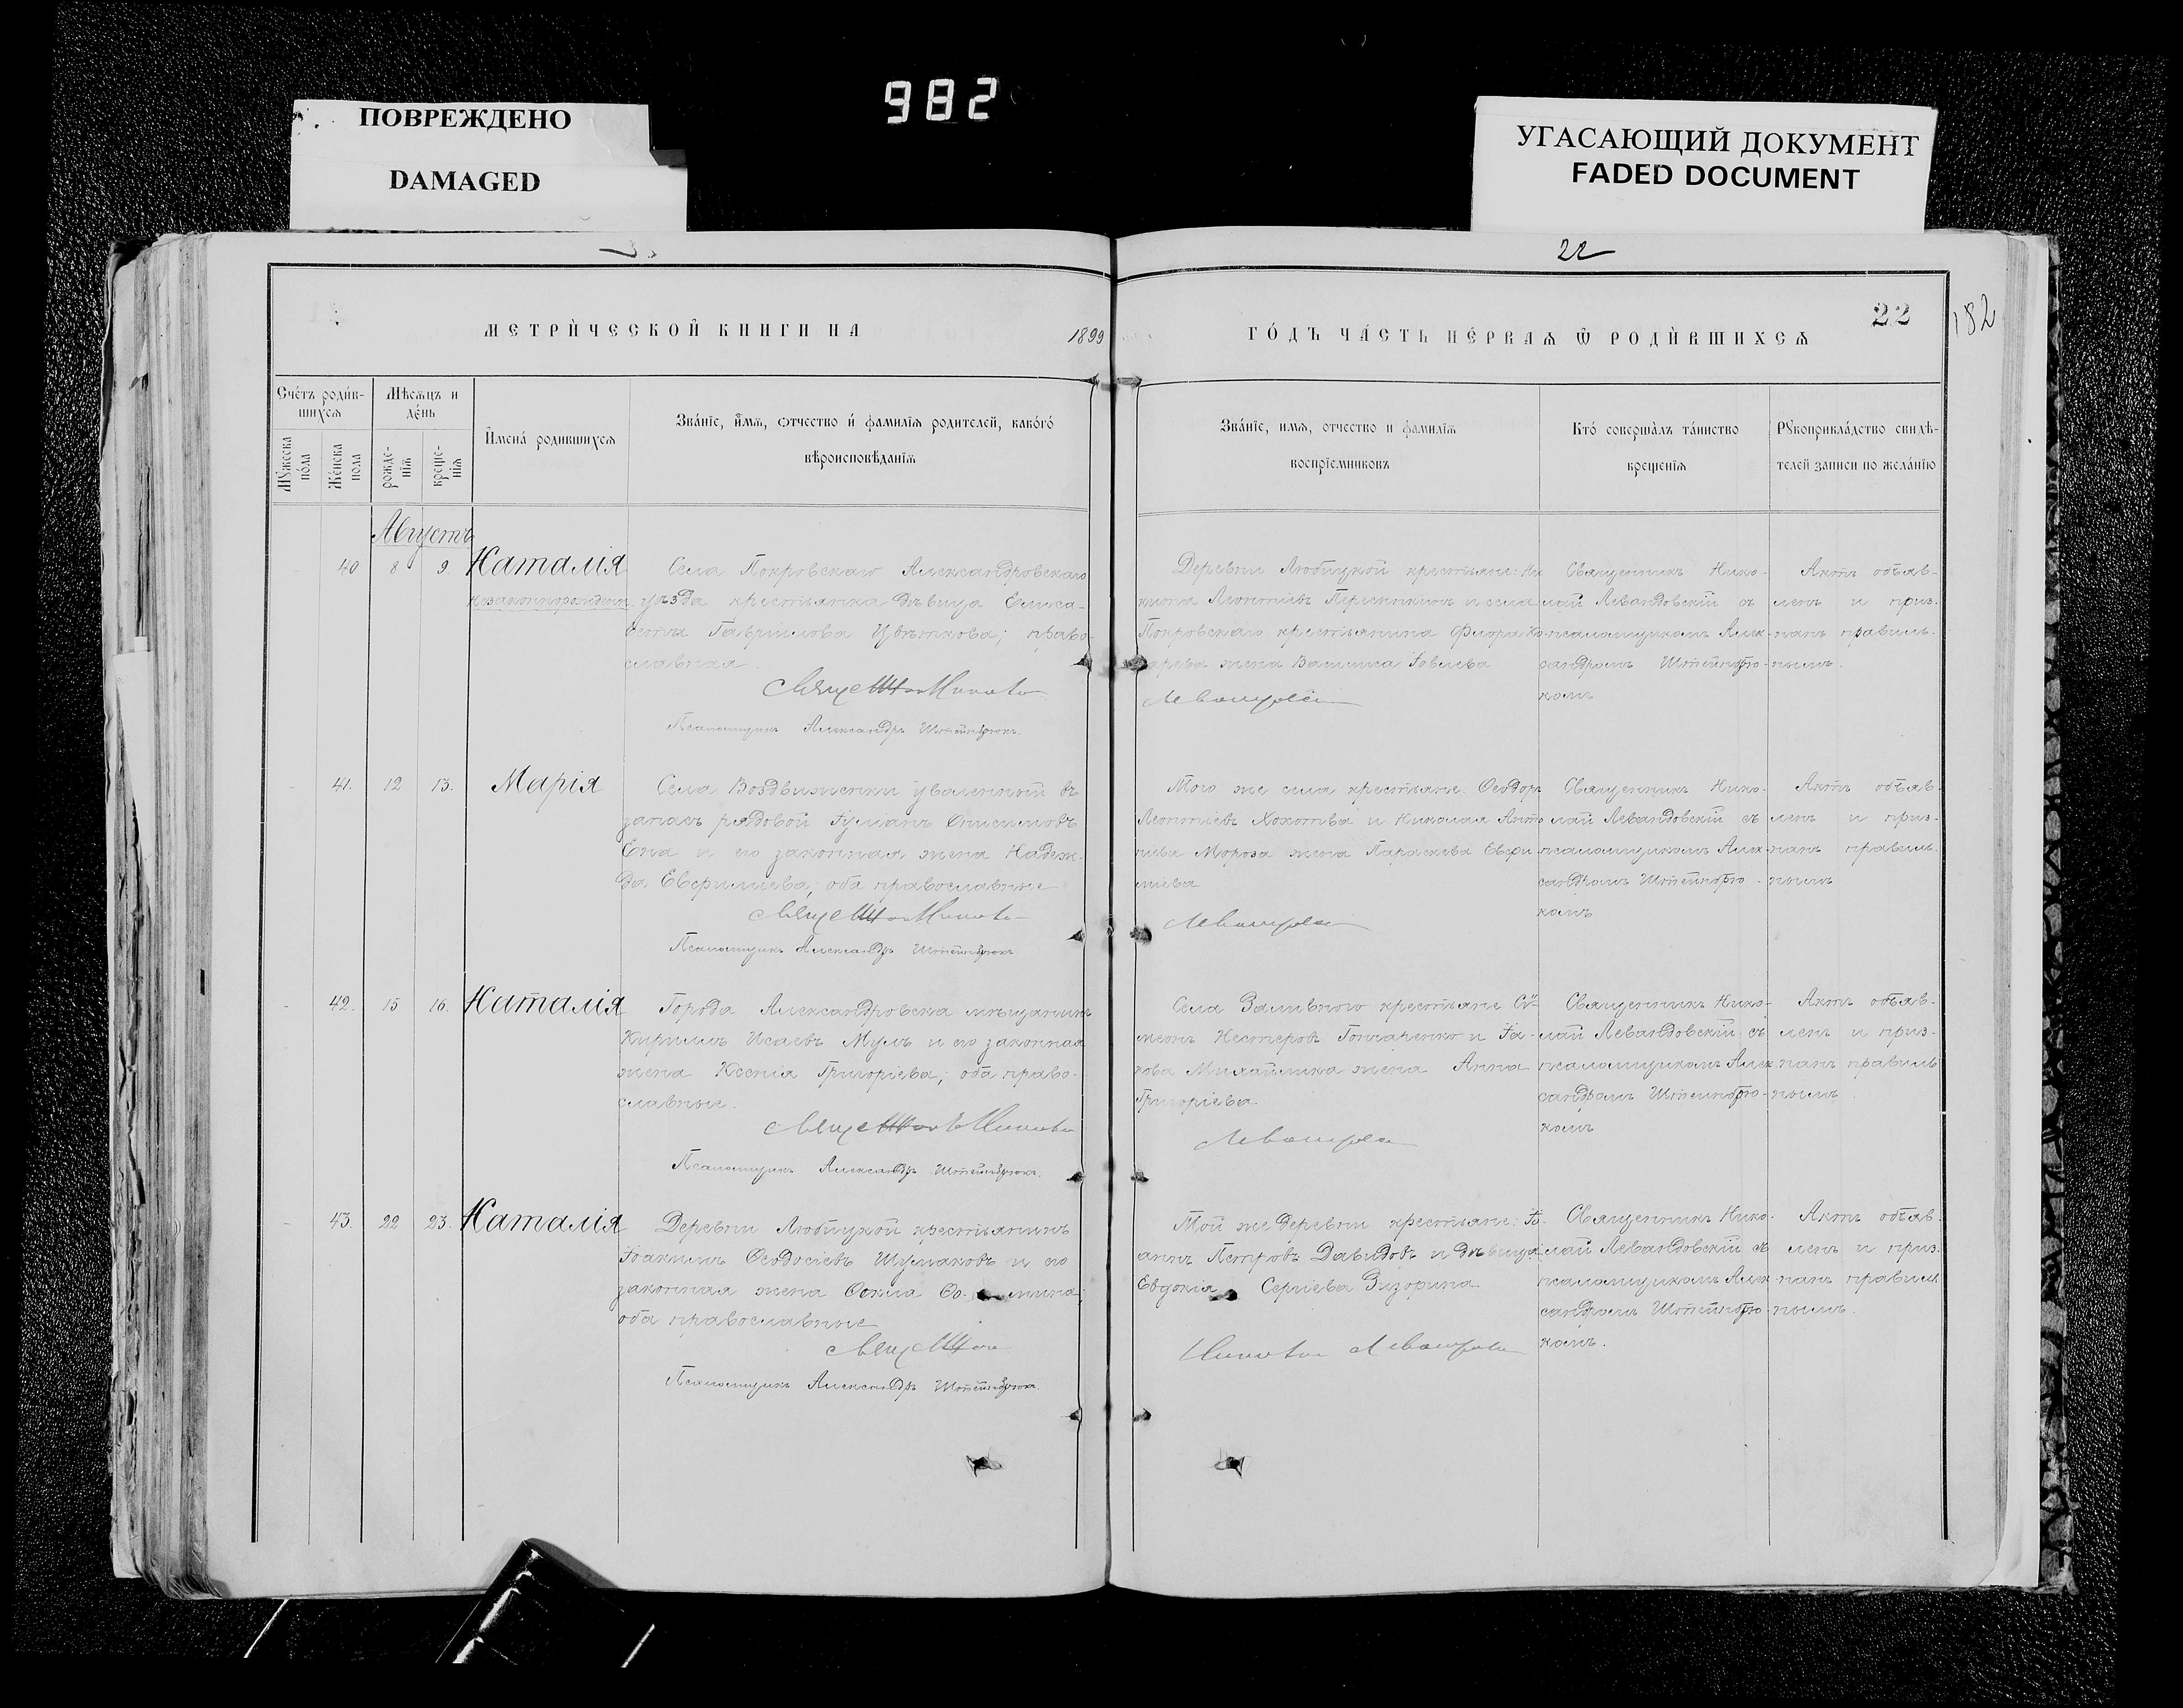 982
ПОВРЕЖДЕНО
DAMAGED
УГАСАЮЩИЙ ДОКУМЕНТ
FADED DOCUMENT
22
22
182
МЕТРИ́ЧЕСКОЙ КНИГИ НА 1899
ГО́ДЪ ЧА́СТЬ ПЕ́РВАѦ Ѿ РОДИ́ВШИХСѦ
Сче́тъ роди́в-
шихсѧ
Мѣсѧцъ и
де́нь
Мꙋжеска
по́ла
Же́нска
пола
рожде-
нїѧ
креще-
нїѧ
И҆мена́ родившихсѧ
Зва́нїе, и҆́мѧ, ѻтчество и҆ фамилїѧ родителей, како́гѡ
вѣроисповѣданїѧ
Зва́нїе, имѧ, отчество и фамилїѧ
воспрїемниковъ
Кто́ соверша́лъ та́инство
крещенїѧ
Рꙋкоприкла́дство свидѣ-
телей записи по жела́нїю
Августъ
40 8 9. Наталія
незаконнорожден.
Села Покровскаго Александровскаго
уѣзда крестьянка дѣвица Елиса-
вета Гавріилова Цвѣткова; право-
славная.
Псаломщикъ Александръ Штейнбрюкъ.
Деревни Любицкой крестьяне: Ни-
кита Леонтіевъ Пересыпкинъ и села
Покровскаго крестьянина Флора Ко-
жена Василиса Іовлева
Священникъ Нико-
лай Левандовскій съ
псаломщикомъ Алек-
сандромъ Штейнбрю-
комъ
Актъ объяв-
ленъ и приз-
нанъ правиль-
нымъ.
41. 12 13. Марія
Села Воздвиженки уволенный въ
запасъ рядовой Іуліанъ Онисимовъ
Ена и его законная жена Надеж-
да Евфиміева; оба православные
Псаломщикъ Александръ Штейнбрюкъ
Того же села крестьяне: Ѳеодоръ
Леонтіевъ Хохотва и Николая Анто-
ніева Мороза жена Параскева Евфи-
міева
Священникъ Нико-
лай Левандовскій съ
псаломщикомъ Алек-
сандромъ Штейнбрю-
комъ
Актъ объяв-
ленъ и приз-
нанъ правиль-
нымъ
42. 15 16. Наталія
Города Александровска мѣщанинъ
Кириллъ Исаевъ Мулъ и его законная
жена Ксенія Григоріева; оба право-
славные.
Псаломщикъ Александръ Штейнбрюкъ.
Села Заливного крестьяне Сѵ-
меонъ Нестеровъ Гончаренко и Іа-
кова Михайлика жена Анна
Григоріева
Священникъ Нико-
лай Левандовскій съ
псаломщикомъ Алек-
сандромъ Штейнбрю-
комъ
Актъ объяв-
ленъ и приз-
нанъ правиль-
нымъ.
43. 22 23. Наталія
Деревни Любицкой крестьянинъ
Іоакимъ Ѳеодосіевъ Шумаковъ и его
законная жена Ѳекла Ѳо- мина;
оба православные
Псаломщикъ Александръ Штейнбрюкъ.
Той же деревни крестьяне: Іо-
аннъ Петровъ Давидовъ и дѣвица
Евдокія Сергіева Зизорина
Священникъ Нико-
лай Левандовскій съ
псаломщикомъ Алек-
сандромъ Штейнбрю-
комъ.
Актъ объяв-
ленъ и приз-
нанъ правиль-
нымъ.